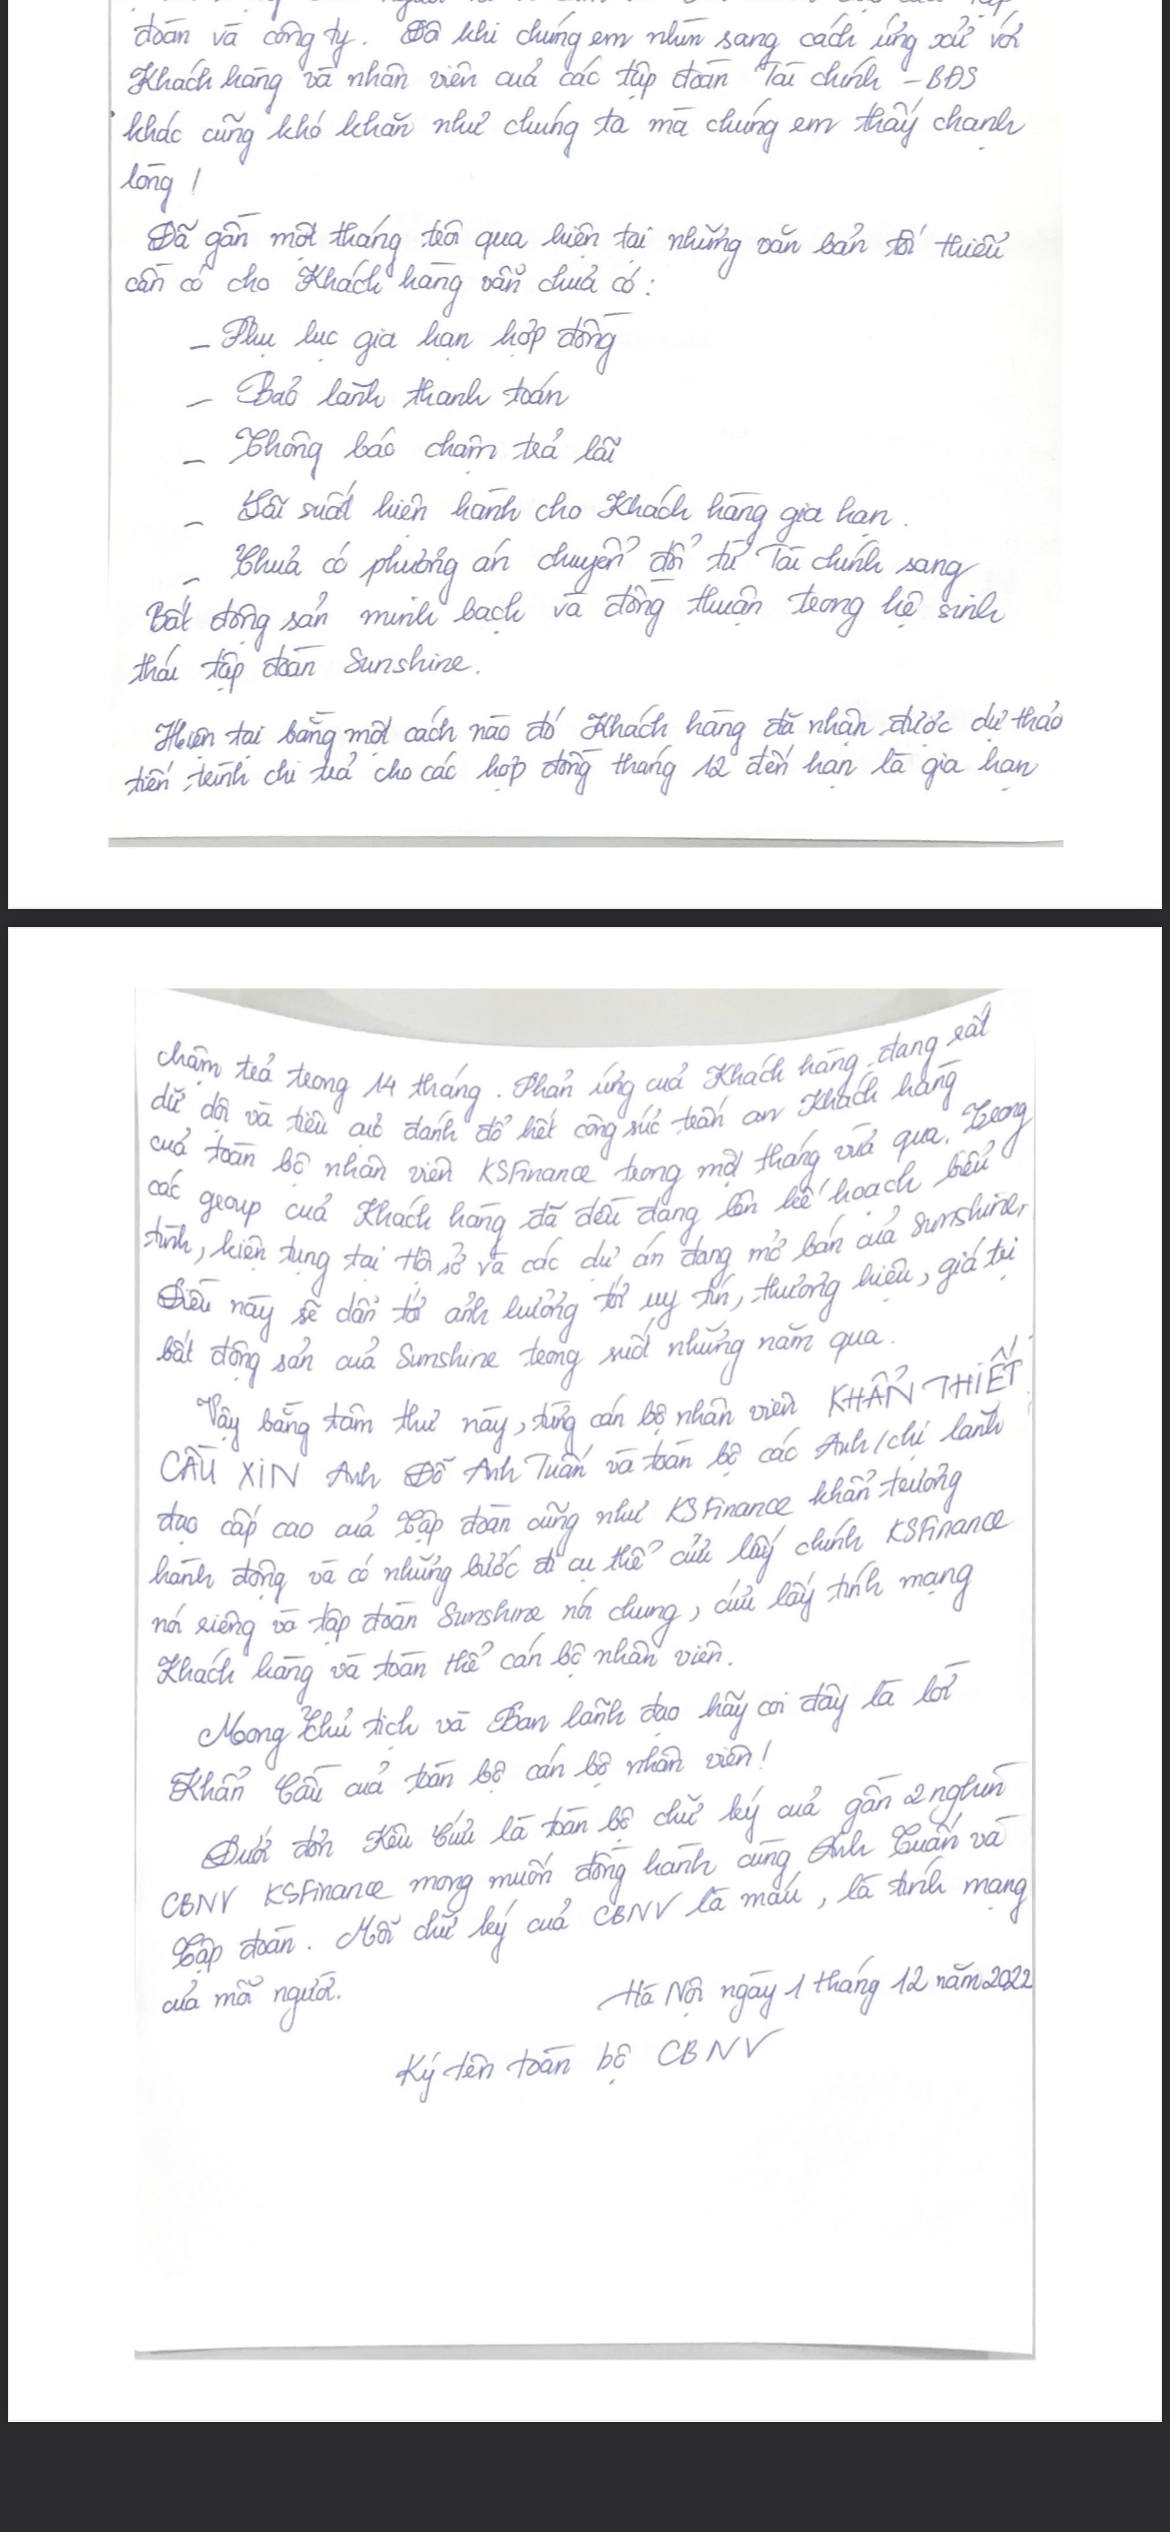 đoàn và công ty. Đã khi chúng em nhìn sang cách ứng xử với
Khách hàng và nhân viên của các tập đoàn Tài chính - BĐS
khác cũng khó khăn như chúng ta mà chúng em thấy chạnh
lòng !
Đã gần một tháng trôi qua hiện tại những văn bản tối thiểu
cần có cho Khách hàng vẫn chưa có :
- Phụ lục gia hạn hợp đồng
- Bảo lãnh thanh toán
- Thông báo chậm trả lãi
- Lãi suất hiện hành cho Khách hàng gia hạn.
- Chưa có phương án chuyển đổi từ Tài chính sang
Bất động sản minh bạch và đồng thuận trong hệ sinh
thái tập đoàn Sunshine.
Hiện tại bằng một cách nào đó Khách hàng đã nhận được dự thảo
tiến trình chi trả cho các hợp đồng tháng 12 đến hạn là gia hạn
chậm trả trong 14 tháng. Phản ứng của Khách hàng đang rất
dữ dội và tiêu cực đánh đổ hết công sức trấn an Khách hàng
của toàn bộ nhân viên KSFinance trong một tháng vừa qua. Trong
các group của Khách hàng đã đều đang lên kế hoạch biểu
tình, kiện tụng tại Hội sở và các dự án đang mở bán của Sunshine,
Điều này sẽ dẫn tới ảnh hưởng tới uy tín, thương hiệu, giá trị
bất động sản của Sunshine trong suốt những năm qua.
Vậy bằng tâm thư này, từng cán bộ nhân viên KHẨN THIẾT
CẦU XIN Anh Đỗ Anh Tuấn và toàn bộ các Anh/chị lãnh
đạo cấp cao của Tập đoàn cũng như KSFinance khẩn trương
hành động và có những bước đi cụ thể cứu lấy chính KSFinance
nói riêng và tập đoàn Sunshine nói chung, cứu lấy tính mạng
Khách hàng và toàn thể cán bộ nhân viên.
Mong Chủ tịch và Ban lãnh đạo hãy coi đây là lời
Khẩn Cầu của toàn bộ cán bộ nhân viên!
Dưới đơn Kêu Cứu là toàn bộ chữ ký của gần 2 nghìn
CBNV KSFinance mong muốn đồng hành cùng Anh Tuấn và
Tập đoàn. Mỗi chữ ký của CBNV là máu, là tính mạng
của mỗi người.
Hà Nội ngày 1 tháng 12 năm 2022
Ký tên toàn bộ CBNV